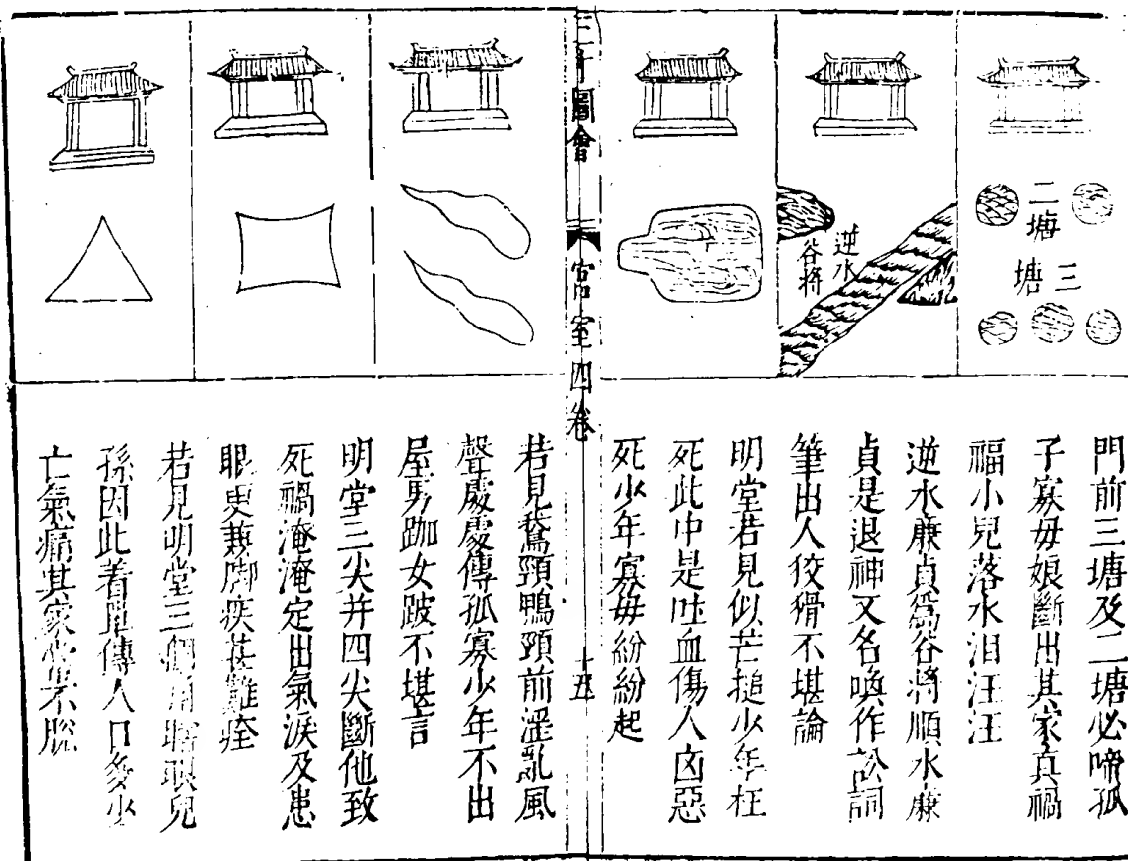 二塘
三塘
逆水
谷將
門前三塘及二塘必啼孤
子寡母娘斷出其家真禍
福小兒落水泪汪汪
逆水廉貞爲谷將順水廉
貞是退神又名喚作訟詞
筆出人狡猾不堪論
明堂若見似芒搥少年枉
死此中是吐血傷人凶惡
死少年寡母紛紛起
三才圖會
宫室四卷
十五
若見鵞頸鴨頸前淫亂風
聲處處傳孤寡少年不出
屋男跏女跛不堪言
明堂三尖并四尖斷他致
死禍淹淹定出氣淚及患
眼更兼脚疾甚難痊
若見明堂三個角瞎眼兒
孫因此着傳人口多少
亡氣痛其家